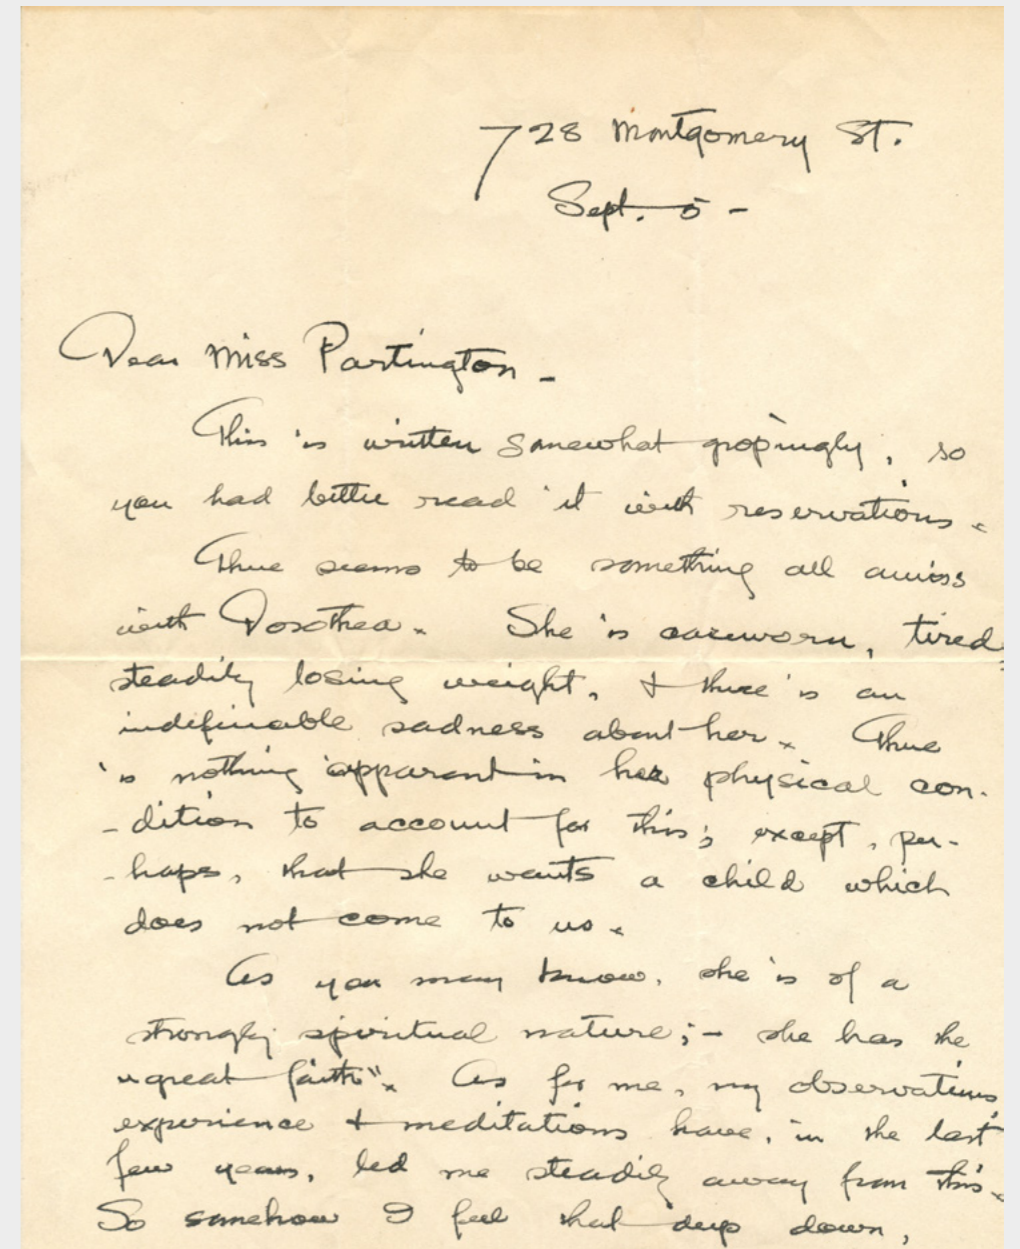 728 Montgomery St.
Sept. 5 -
Dear Miss Partington -
This is written somewhat gropingly, so
you had better read it with reservations.
There seems to be something all amiss
with Dorothea. She is careworn, tired,
steadily losing weight, & there is an
indefinable sadness about her. There
is nothing apparent in her physical con-
-dition to account for this; except, per-
-haps, that she wants a child which
does not come to us.
As you may know, she is of a
strongly spiritual nature; - she has the
"great faith". As for me, my observations,
experience & meditations have, in the last
few years, led me steadily away from this.
So somehow I feel that deep down,